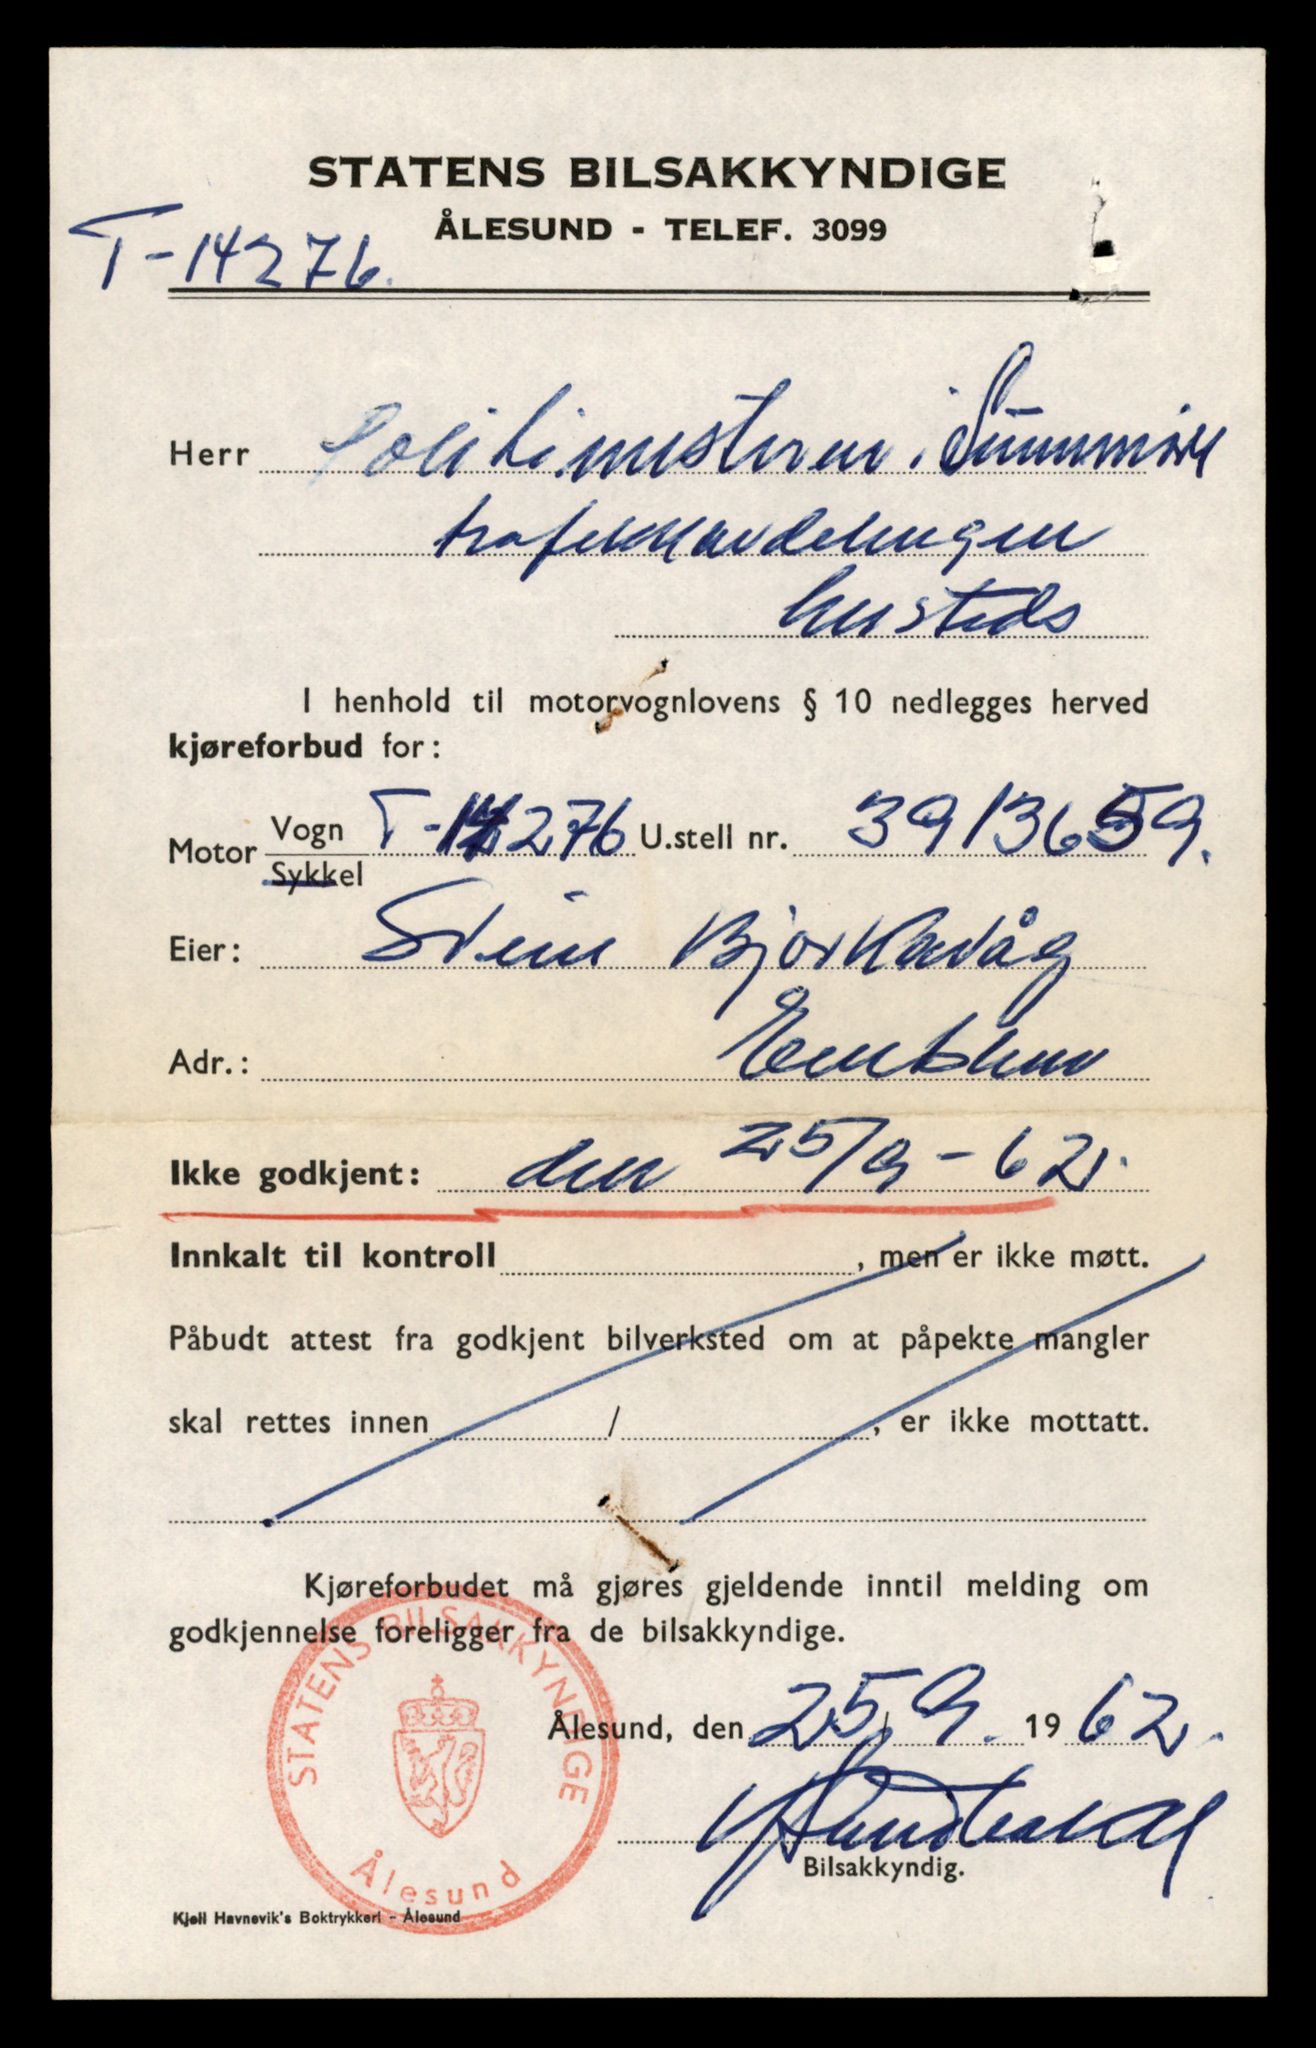 STATENS BILSAKKYNDIGE
ÅLESUND - TELEF. 3099
T-14276.
Herr Politimesteren i Sunnmøre
trafikkavdelingen
hersteds
I henhold til motorvognlovens § 10 nedlegges herved
kjøreforbud for:
Motor Vogn / Sykkel T-14276 U.stell nr. 3913659.
Eier: Stein Bjørkavåg
Adr.: Emblem
Ikke godkjent: den 25/9-62.
Innkalt til kontroll , men er ikke møtt.
Påbudt attest fra godkjent bilverksted om at påpekte mangler
skal rettes innen / , er ikke mottatt.
Kjøreforbudet må gjøres gjeldende inntil melding om
godkjennelse foreligger fra de bilsakkyndige.
Ålesund, den 25/9. 1962.
Bilsakkyndig.
STATENS BILSAKKYNDIGE
Ålesund
Kjell Havnevik's Boktrykkeri - Ålesund